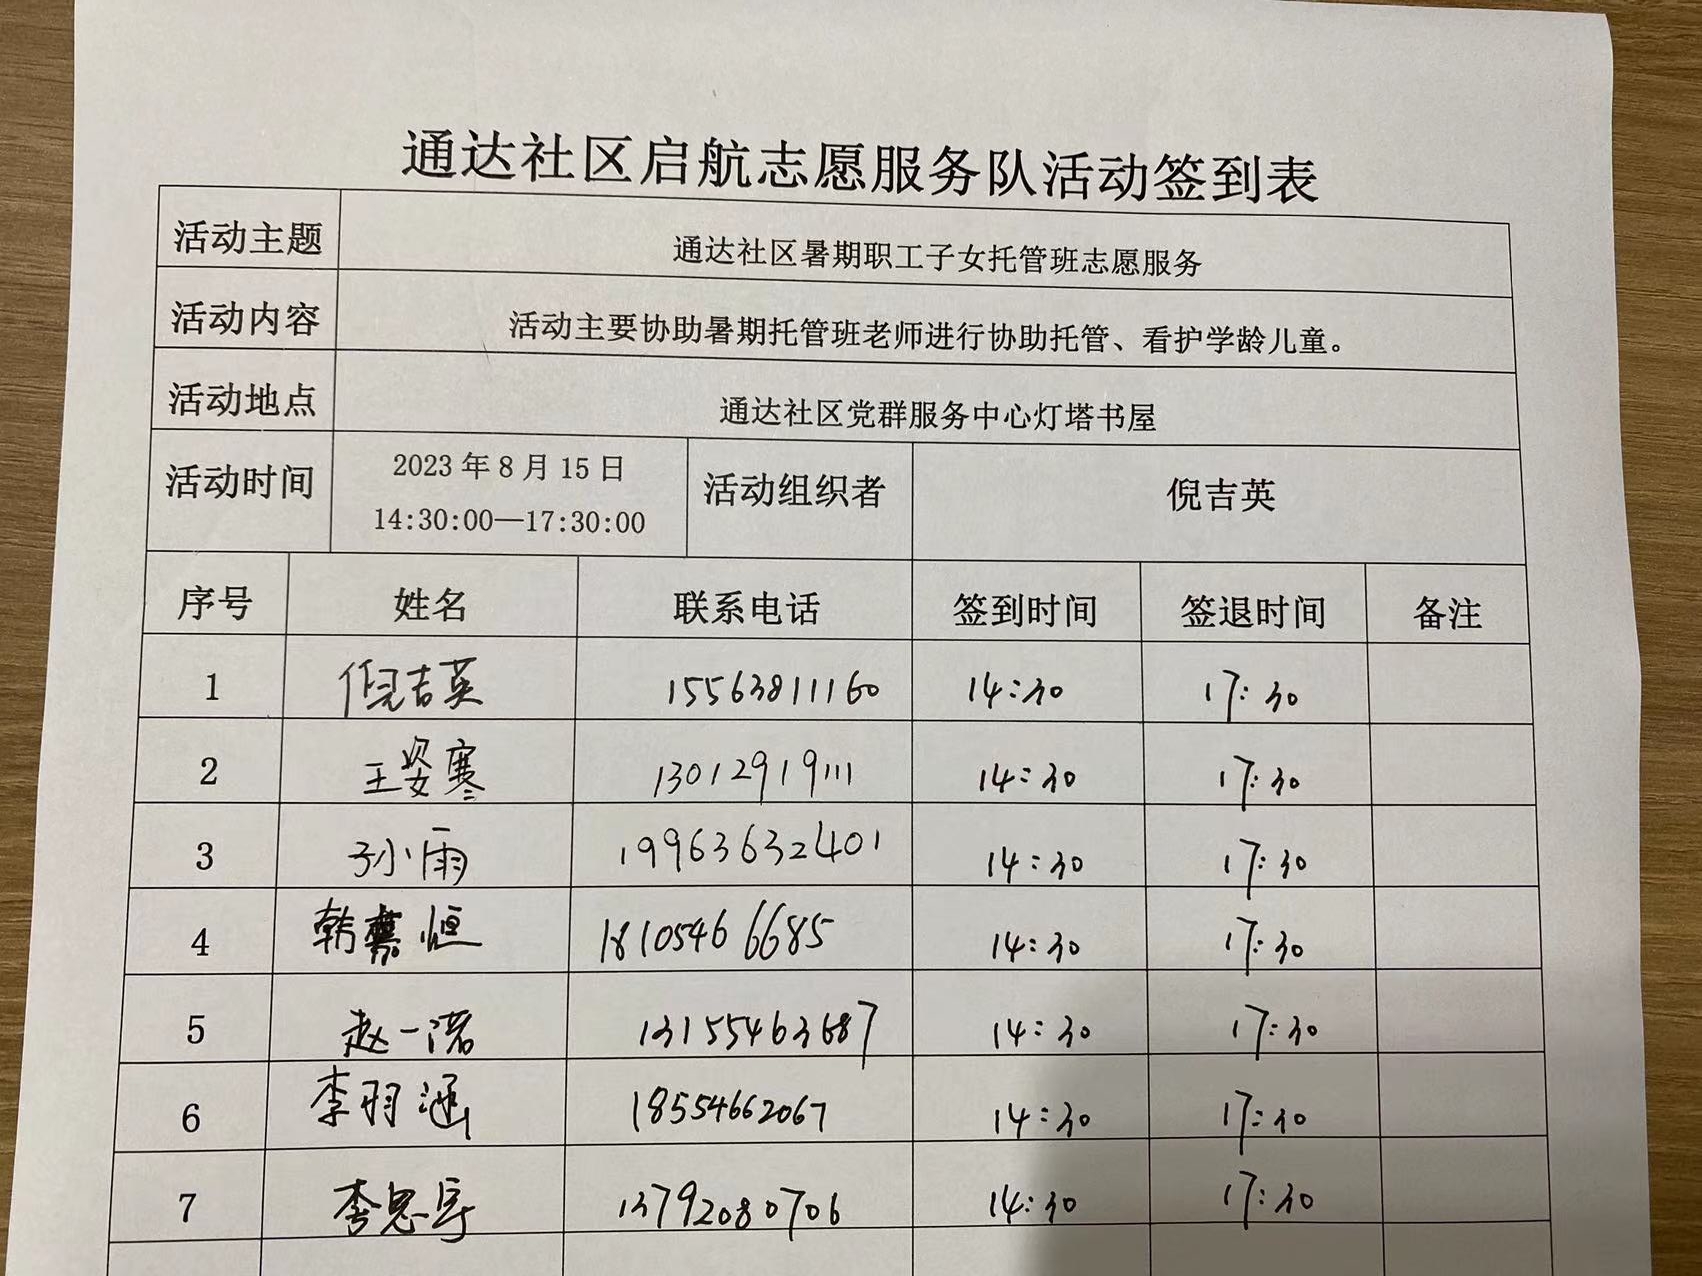 通达社区启航志愿服务队活动签到表
活动主题 通达社区暑期职工子女托管班志愿服务
活动内容 活动主要协助暑期托管班老师进行协助托管、看护学龄儿童。
活动地点 通达社区党群服务中心灯塔书屋
活动时间 2023年8月15日 14:30:00—17:30:00 活动组织者 倪吉英
序号 姓名 联系电话 签到时间 签退时间 备注
1 倪吉英 15563811160 14:30 17:30
2 王姿寒 13012919111 14:30 17:30
3 孙小雨 19963632401 14:30 17:30
4 韩嘉恒 18105466685 14:30 17:30
5 赵一诺 13155463687 14:30 17:30
6 李羽涵 18554662067 14:30 17:30
7 李思宇 13792080706 14:30 17:30